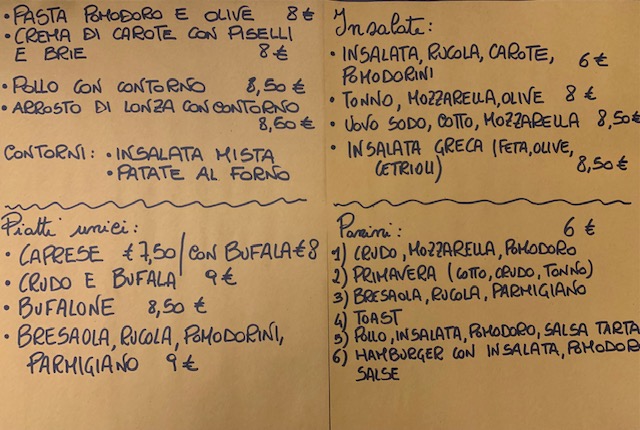 • PASTA POMODORO E OLIVE 8 €
• CREMA DI CAROTE CON PISELLI
E BRIE 8 €
• POLLO CON CONTORNO 8,50 €
• ARROSTO DI LONZA CON CONTORNO
8,50 €
CONTORNI: • INSALATA MISTA
• PATATE AL FORNO
Piatti unici:
• CAPRESE € 7,50 / CON BUFALA € 8
• CRUDO E BUFALA 9 €
• BUFALONE 8,50 €
• BRESAOLA, RUCOLA, POMODORINI,
PARMIGIANO 9 €
Insalate:
• INSALATA, RUCOLA, CAROTE, 6 €
POMODORINI
• TONNO, MOZZARELLA, OLIVE 8 €
• UOVO SODO, COTTO, MOZZARELLA 8,50 €
• INSALATA GRECA (FETA, OLIVE,
CETRIOLI) 8,50 €
Panini: 6 €
1) CRUDO, MOZZARELLA, POMODORO
2) PRIMAVERA (COTTO, CRUDO, TONNO)
3) BRESAOLA, RUCOLA, PARMIGIANO
4) TOAST
5) POLLO, INSALATA, POMODORO, SALSA TARTA
6) HAMBURGER CON INSALATA, POMODOR
SALSE